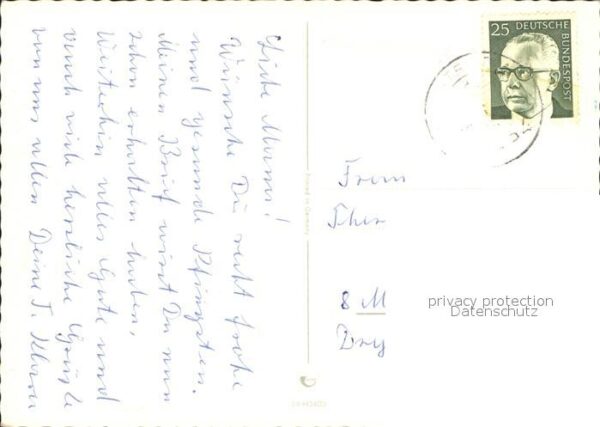 Liebe Mama!
Wünsche Dir recht frohe
und gesunde Pfingsten.
Meinen Brief wirst Du nun
schon erhalten haben,
Weiterhin alles Gute und
noch viele herzliche Grüße
von uns allen Deine
25
DEUTSCHE
BUNDESPOST
Printed in Germany
8 M
privacy protection
Datenschutz